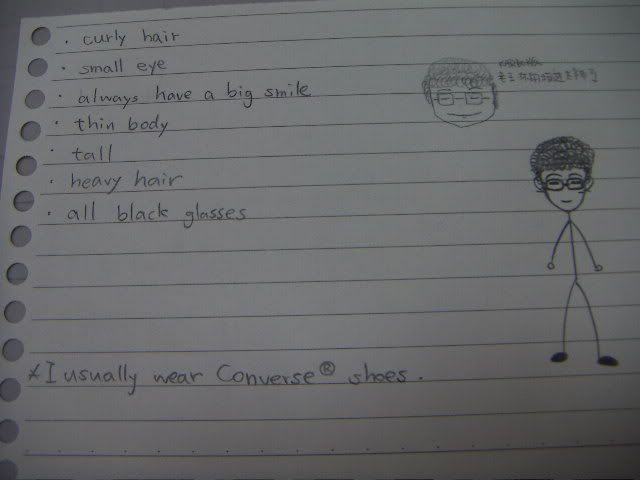 · curly hair
· small eye
· always have a big smile
· thin body
· tall
· heavy hair
· all black glasses
*I usually wear Converse® shoes.